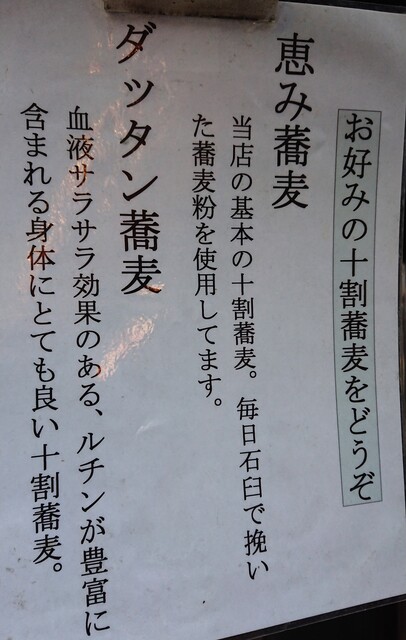 お好みの十割蕎麦をどうぞ
恵み蕎麦
当店の基本の十割蕎麦。毎日石臼で挽い
た蕎麦粉を使用してます。
ダッタン蕎麦
血液サラサラ効果のある、ルチンが豊富に
含まれる身体にとても良い十割蕎麦。